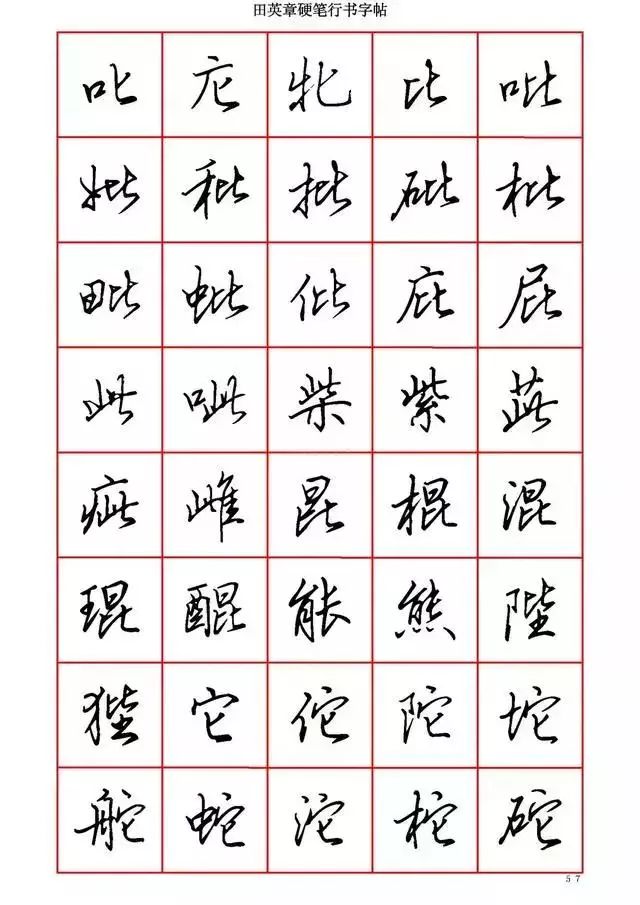 田英章硬笔行书字帖
叱 庀 牝 比 吡
妣 秕 批 砒 枇
毗 蚍 仳 庇 屁
此 呲 柴 紫 茈
疵 雌 昆 棍 混
琨 醌 能 熊 陛
狴 它 佗 陀 坨
舵 蛇 沱 柁 砣
57